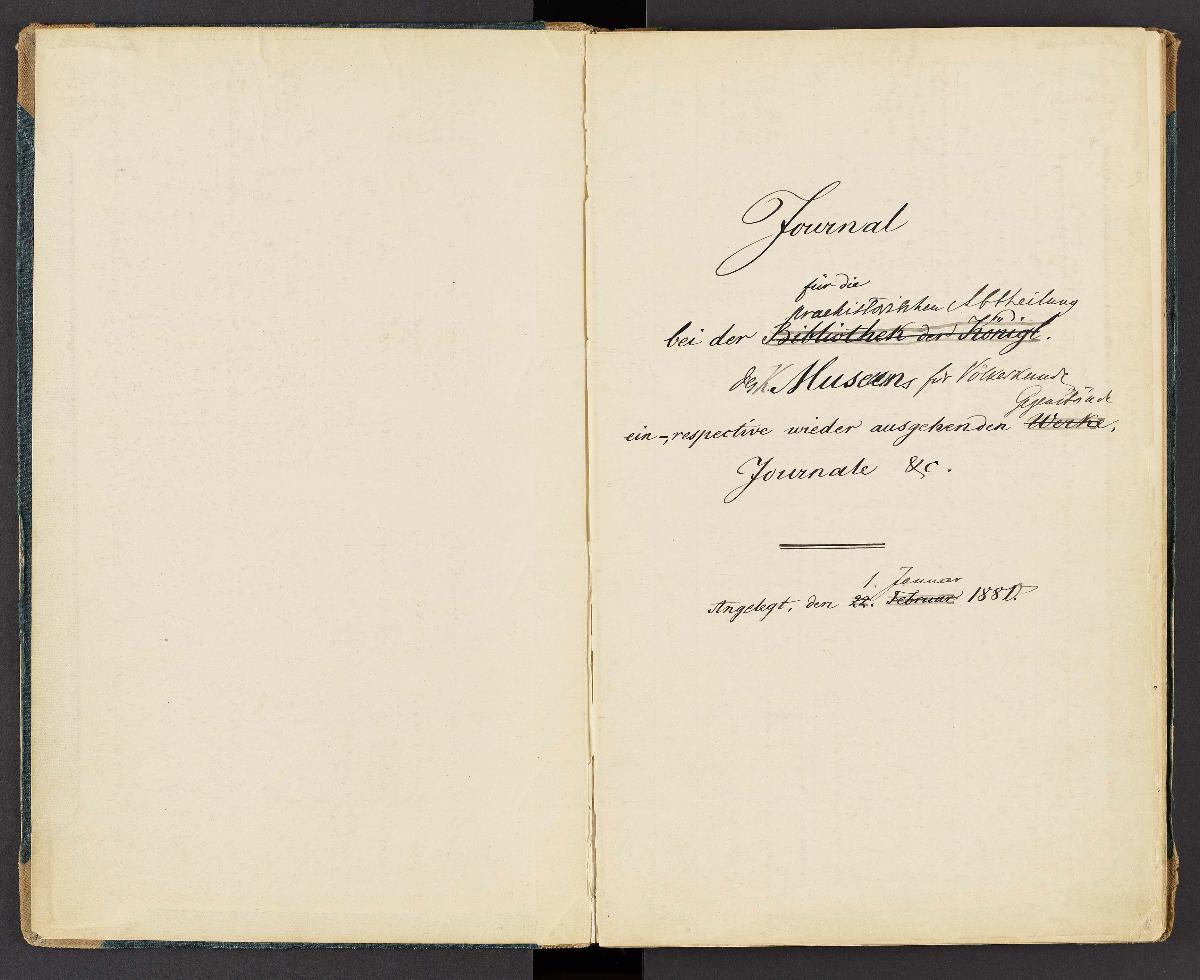 Journal
für die
praehistorischen Abtheilung
bei der Bibliothek der Königl.
des K. Museums für Völkerkunde
Gegenstände
ein-, respective wieder ausgehenden Werke,
Journale &c.
1. Januar
Angelegt, den 22. Februar 1881.